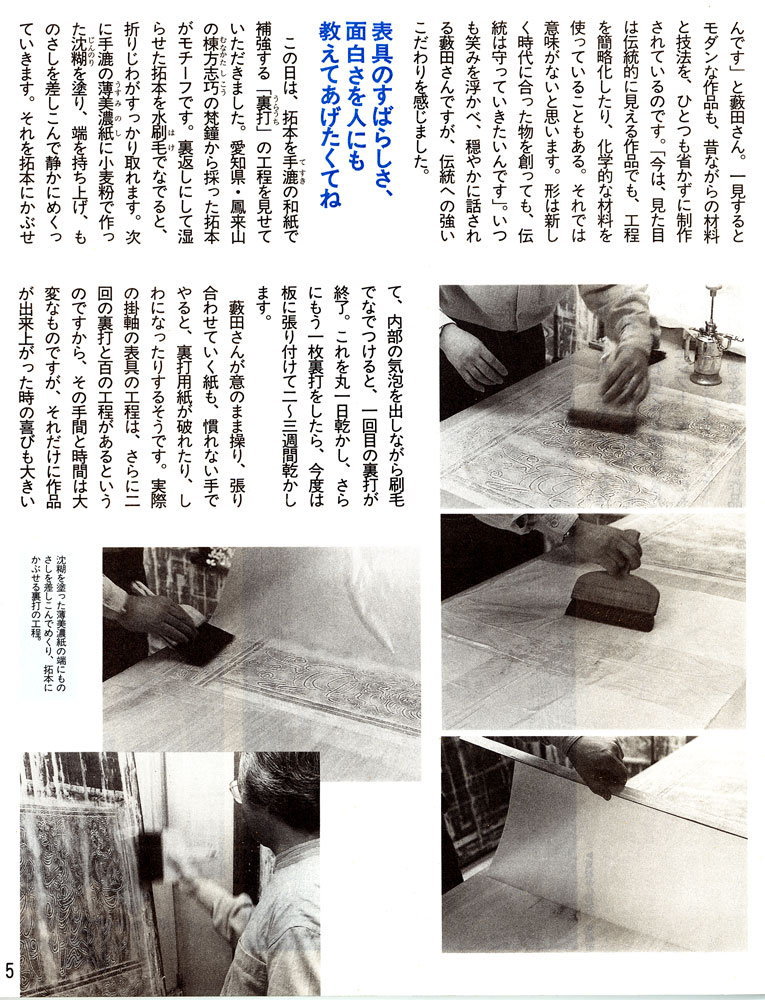 んです」と藪田さん。一見すると
モダンな作品も、昔ながらの材料
と技法を、ひとつも省かずに制作
されているのです。「今は、見た目
は伝統的に見える作品でも、工程
を簡略化したり、化学的な材料を
使っていることもある。それでは
意味がないと思います。形は新し
く時代に合った物を創っても、伝
統は守っていきたいんです」。いつ
も笑みを浮かべ、穏やかに話され
る藪田さんですが、伝統への強い
こだわりを感じました。
表具のすばらしさ、
面白さを人にも
教えてあげたくてね
この日は、拓本を手漉の和紙で
補強する「裏打」の工程を見せて
いただきました。愛知県・鳳来山
の棟方志巧の梵鐘から採った拓本
がモチーフです。裏返しにして湿
らせた拓本を水刷毛でなでると、
折りじわがすっかり取れます。次
に手漉の薄美濃紙に小麦粉で作っ
た沈糊を塗り、端を持ち上げ、も
のさしを差しこんで静かにめくっ
ていきます。それを拓本にかぶせ
て、内部の気泡を出しながら刷毛
でなでつけると、一回目の裏打が
終了。これを丸一日乾かし、さら
にもう一枚裏打をしたら、今度は
板に張り付けて二～三週間乾かし
ます。
藪田さんが意のまま操り、張り
合わせていく紙も、慣れない手で
やると、裏打用紙が破れたり、し
わになったりするそうです。実際
の掛軸の表具の工程は、さらに二
回の裏打と百の工程があるという
のですから、その手間と時間は大
変なものですが、それだけに作品
が出来上がった時の喜びも大きい
沈糊を塗った薄美濃紙の端にもの
さしを差しこんでめくり、拓本に
かぶせる裏打の工程。
5